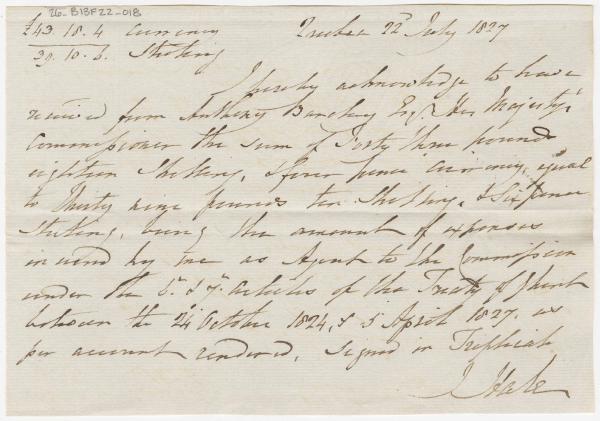 26-B13F22-018
£43. 18. 4 Currency Quebec 22d July 1827
39. 10. 6. Sterling
I hereby acknowledge to have
received from Anthony Barclay Esqr. His Majesty's
Commissioner the sum of Forty three pounds
eighteen Shillings, & four pence Currency, equal
to Thirty nine pounds ten Shillings, & Six pence
Sterling, being the amount of expenses
incurred by me as Agent to the Commission
under the 6th. & 7th. articles of the Treaty of Ghent
between the 24 October 1824, & 5 April 1827, as
per account rendered. Signed in Triplicate
J Hale